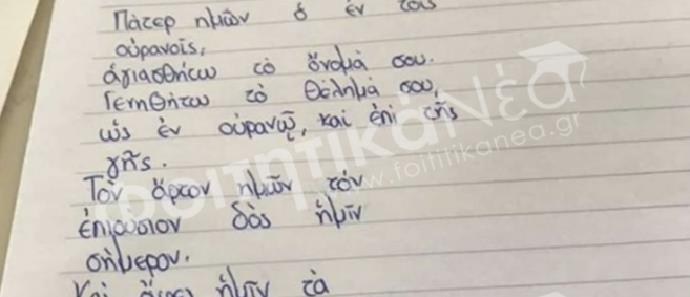 Πάτερ ημών ὁ ἐν τοῖς
οὐρανοῖς,
ἁγιασθήτω τὸ ὄνομά σου.
Γενηθήτω τὸ θέλημά σου,
ὡς ἐν οὐρανῷ, καὶ ἐπὶ τῆς
γῆς.
Τὸν ἄρτον ἡμῶν τὸν
ἐπιούσιον δὸς ἡμῖν
σήμερον.
Καὶ ἄφες ἡμῖν τὰ
φοιτητικάΝέα
www.foititikanea.gr